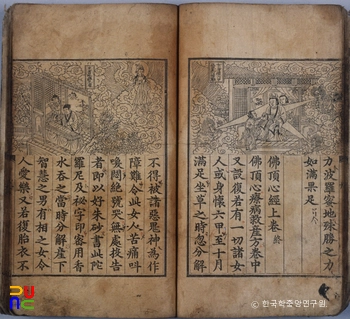 力波羅蜜地殊勝之力
如滿果是
佛頂心經上卷 終
佛頂心療病救産方卷中
又設復若有一切諸女
人或身懷六甲至十月
滿足坐草之時忽分解
不得被諸惡鬼神爲作
障難令此女人苦痛叫
喚悶絶號哭無處投告
者即以好朱砂書此陀
羅尼及秘字印密用香
水呑之當時分解産下
智慧之男有相之女令
人愛樂又若復胎衣不
ⓒ 한국학중앙연구원